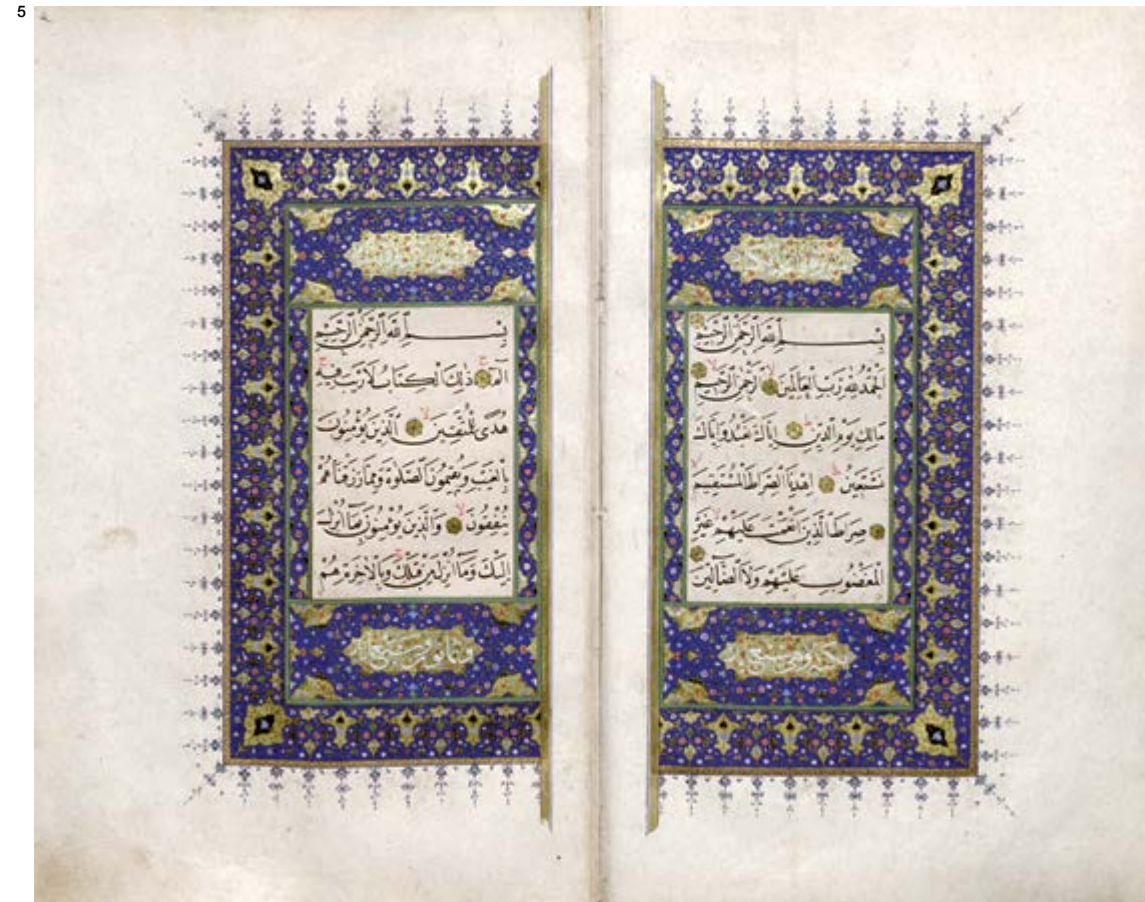 5
بِسْمِ اللّٰهِ الرَّحْمٰنِ الرَّحِيمِ
اَلْحَمْدُ لِلّٰهِ رَبِّ الْعَالَمِينَ اَلرَّحْمٰنِ الرَّحِيمِ
مَالِكِ يَوْمِ الدِّينِ اِيَّاكَ نَعْبُدُ وَاِيَّاكَ
نَسْتَعِينُ اِهْدِنَا الصِّرَاطَ الْمُسْتَقِيمَ
صِرَاطَ الَّذِينَ اَنْعَمْتَ عَلَيْهِمْ غَيْرِ
الْمَغْضُوبِ عَلَيْهِمْ وَلَا الضَّالِّينَ
بِسْمِ اللّٰهِ الرَّحْمٰنِ الرَّحِيمِ
الٓمٓ ذٰلِكَ الْكِتَابُ لَا رَيْبَ فِيهِ
هُدًى لِلْمُتَّقِينَ اَلَّذِينَ يُؤْمِنُونَ
بِالْغَيْبِ وَيُقِيمُونَ الصَّلٰوةَ وَمِمَّا رَزَقْنَاهُمْ
يُنْفِقُونَ وَالَّذِينَ يُؤْمِنُونَ بِمَا اُنْزِلَ
اِلَيْكَ وَمَا اُنْزِلَ مِنْ قَبْلِكَ وَبِالْاٰخِرَةِ هُمْ